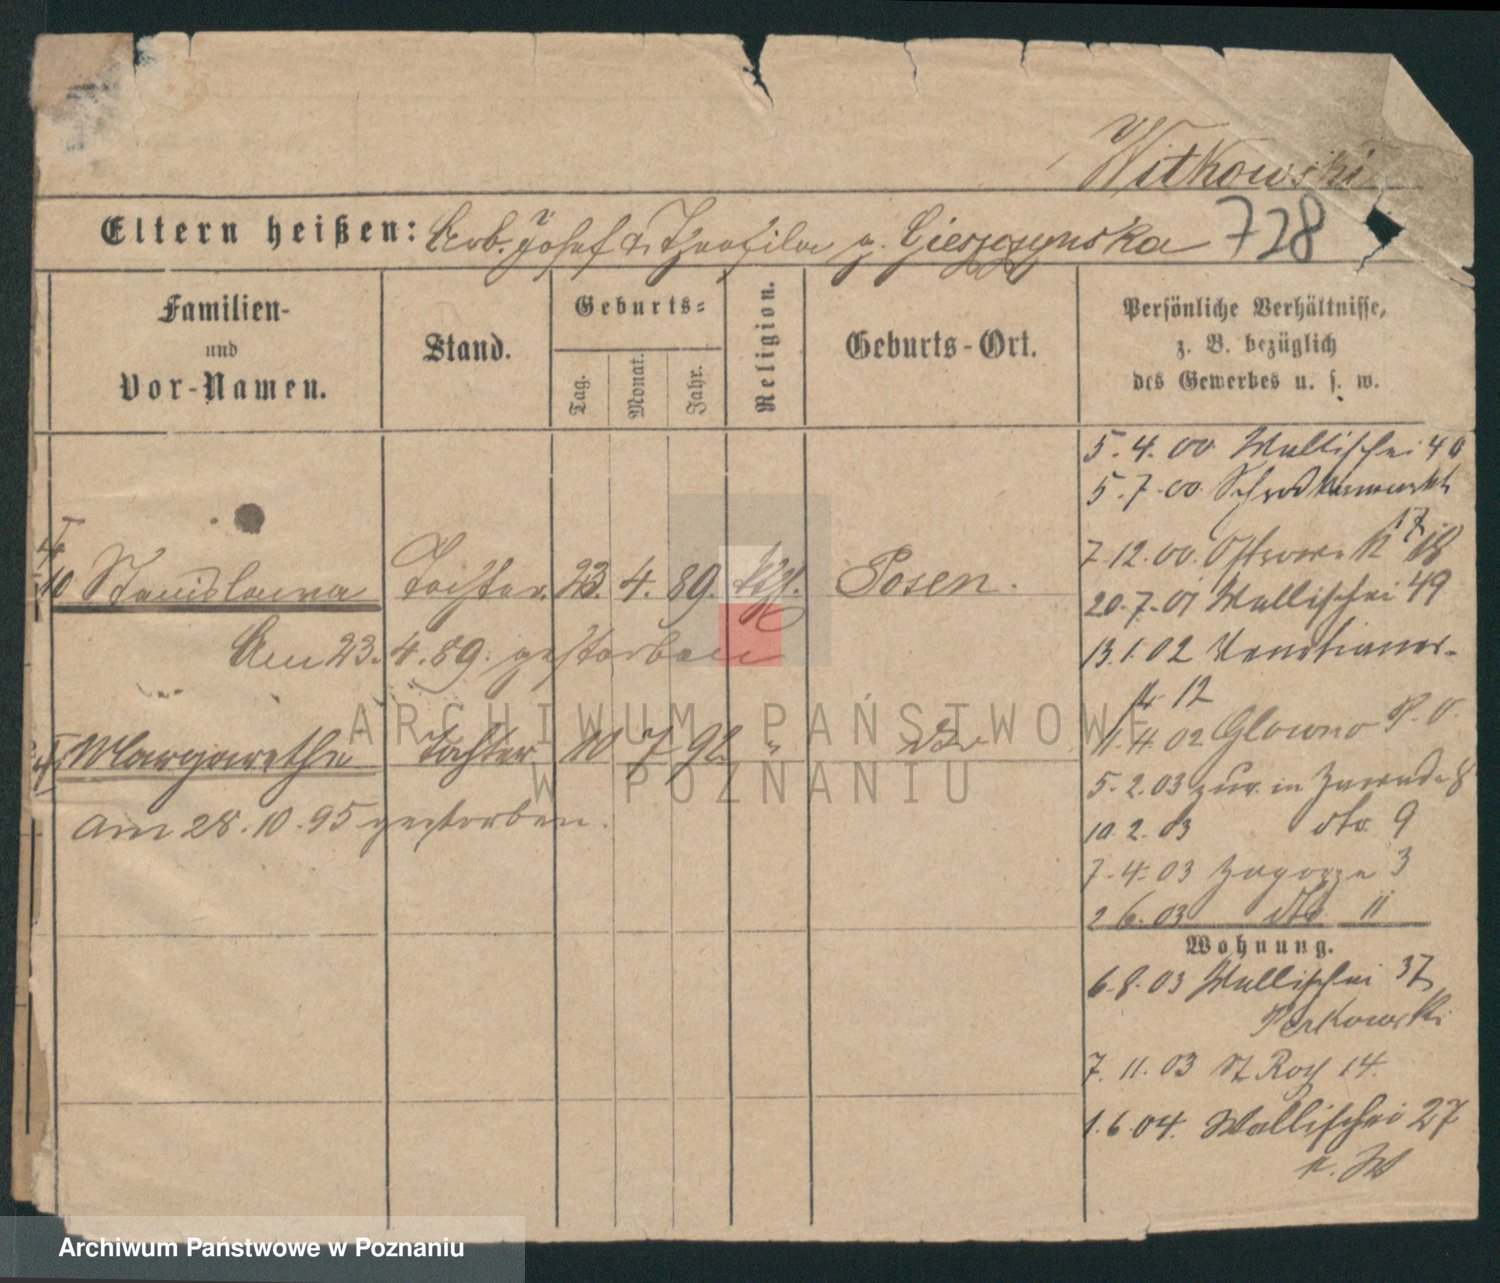 Witkowski
Eltern heißen: Arb. Josef u. Theofila g. Gierszynska 728
Familien-
und
Vor-Namen.
Stand.
Geburts-
Tag.
Monat.
Jahr.
Religion.
Geburts-Ort.
Persönliche Verhältnisse,
z. B. bezüglich
des Gewerbes u. s. w.
10 Stanislawa Tochter 23. 4. 89. kth. Posen.
Am 23. 4. 89. gestorben
Margarethe Tochter 10 7 92 " dto
am 28. 10. 95 gestorben.
5. 4. 00 Wallischei 49
5. 7. 00. Schrodkamarkt
17
7. 12. 00. Ostrowek 18
20. 7. 01 Wallischei 49
13. 1. 02 Venetianer-
str 12
11. 4. 02 Glowno P. O.
5. 2. 03 zur. in Zawade 8
10. 2. 03 dto 9
7. 4. 03 Zagorze 3
2 6. 03 dto 11
Wohnung.
6. 8. 03 Wallischei 37
7. 11. 03 St Roch 14.
1. 6. 04. Wallischei 27
ARCHIWUM PAŃSTWOWE
W POZNANIU
Archiwum Państwowe w Poznaniu